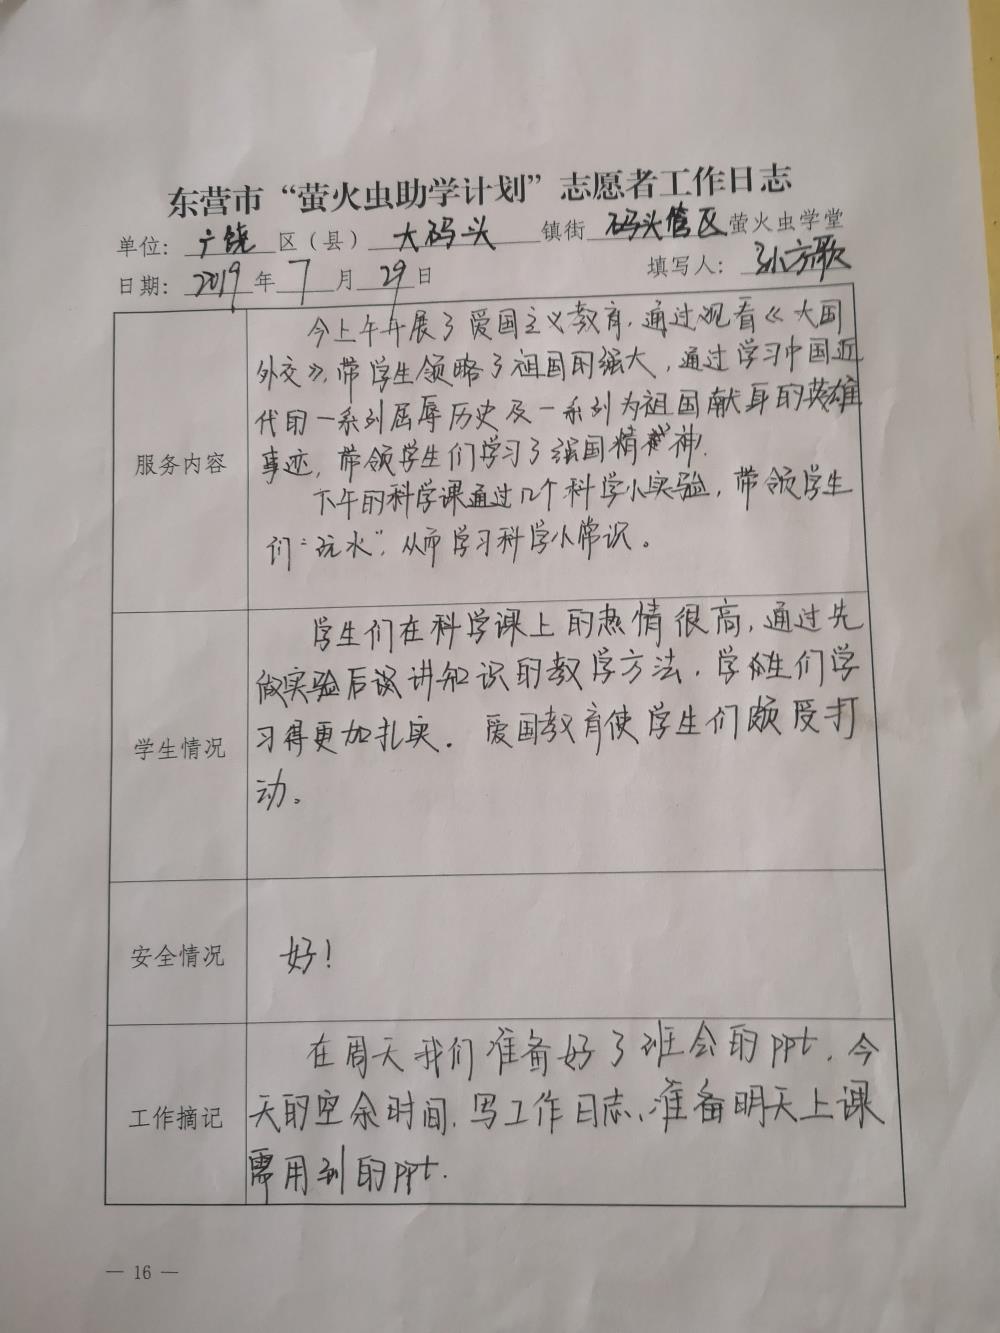 东营市“萤火虫助学计划”志愿者工作日志
单位：广饶区（县）大码头镇街 码头管区萤火虫学堂
日期：2019年7月29日 填写人：孙方歌
服务内容
今上午开展了爱国主义教育，通过观看《大国
外交》，带学生领略了祖国的强大，通过学习中国近
代的一系列屈辱历史及一系列为祖国献身的英雄
事迹，带领学生们学习了强国精神.
下午的科学课通过几个科学小实验，带领学生
们“玩水”，从而学习科学小常识。
学生情况
学生们在科学课上的热情很高，通过先
做实验后谈讲知识的教学方法，学生们学
习得更加扎实．爱国教育使学生们颇受打
动。
安全情况
好！
工作摘记
在周天我们准备好了班会的ppt，今
天的空余时间，写工作日志、准备明天上课
需用到的ppt.
— 16 —